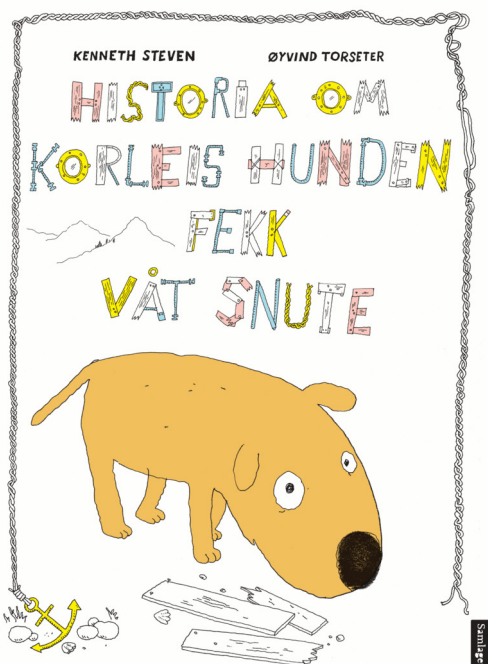 KENNETH STEVEN ØYVIND TORSETER
HISTORIA OM
KORLEIS HUNDEN
FEKK
VÅT SNUTE